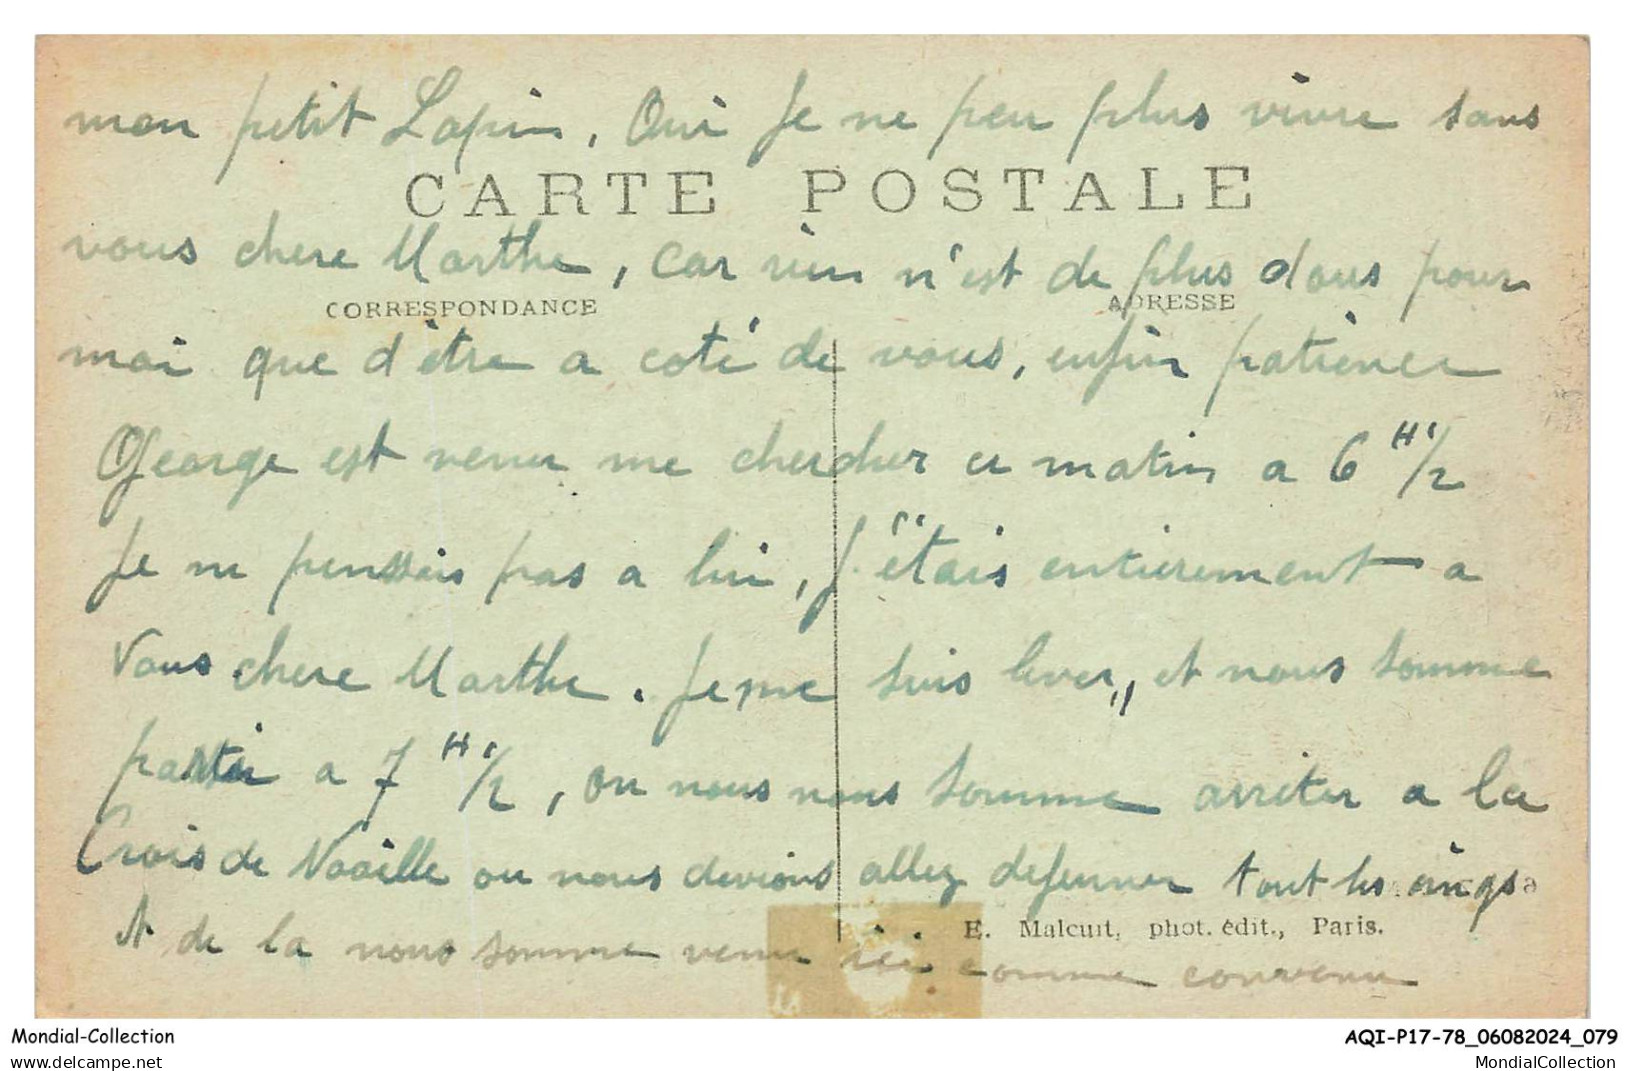 mon petit Lapin, Oui Je ne peu plus vivre sans
CARTE POSTALE
vous chere Marthe, car rien n'est de plus dous pour
CORRESPONDANCE
ADRESSE
moi que d'être a coté de vous, enfin patience
George est venu me chercher ce matin a 6 H 1/2
Je ne penssais pas a lui, J'étais entierement a
Vous chere Marthe. Je me suis lever,, et nous somme
partir a 7 H 1/2, ou nous nous somme arrêter a la
Crois de Noaille ou nous devions allez dejeunner tout les
E. Malcuit, phot. édit., Paris.
et de la nous somme venu ici comme convenu
Mondial-Collection
AQI-P17-78_06082024_079
www.delcampe.net
MondialCollection